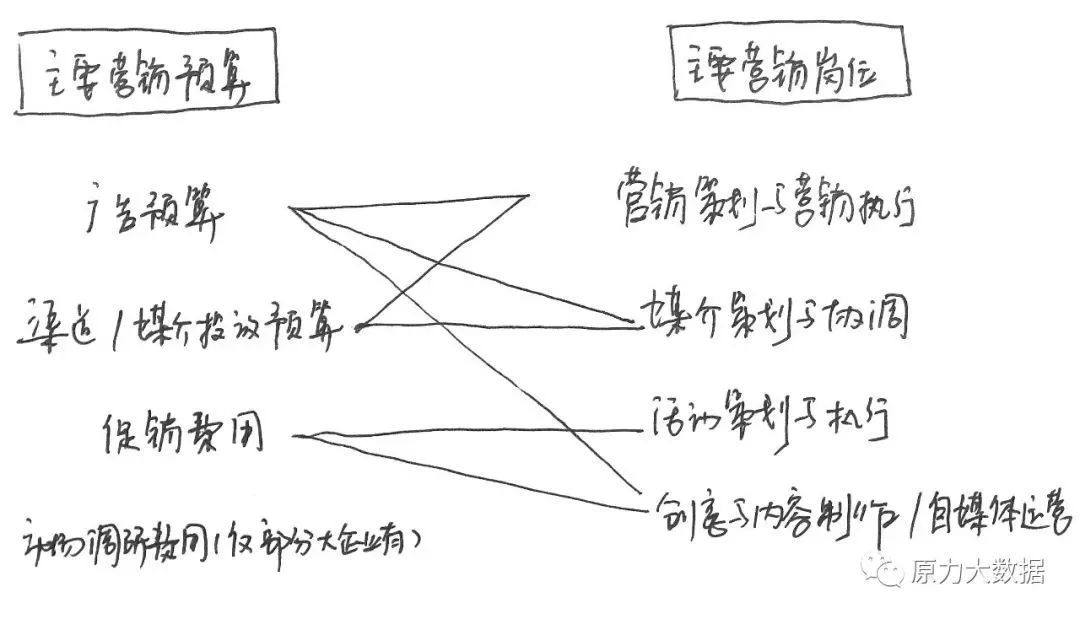 主要营销预算
主要营销岗位
广告预算
营销策划与营销执行
渠道/媒介投放预算
媒介策划与协调
促销费用
活动策划与执行
创意与内容制作/自媒体运营
市场调研费用(仅部分大企业有)
原力大数据